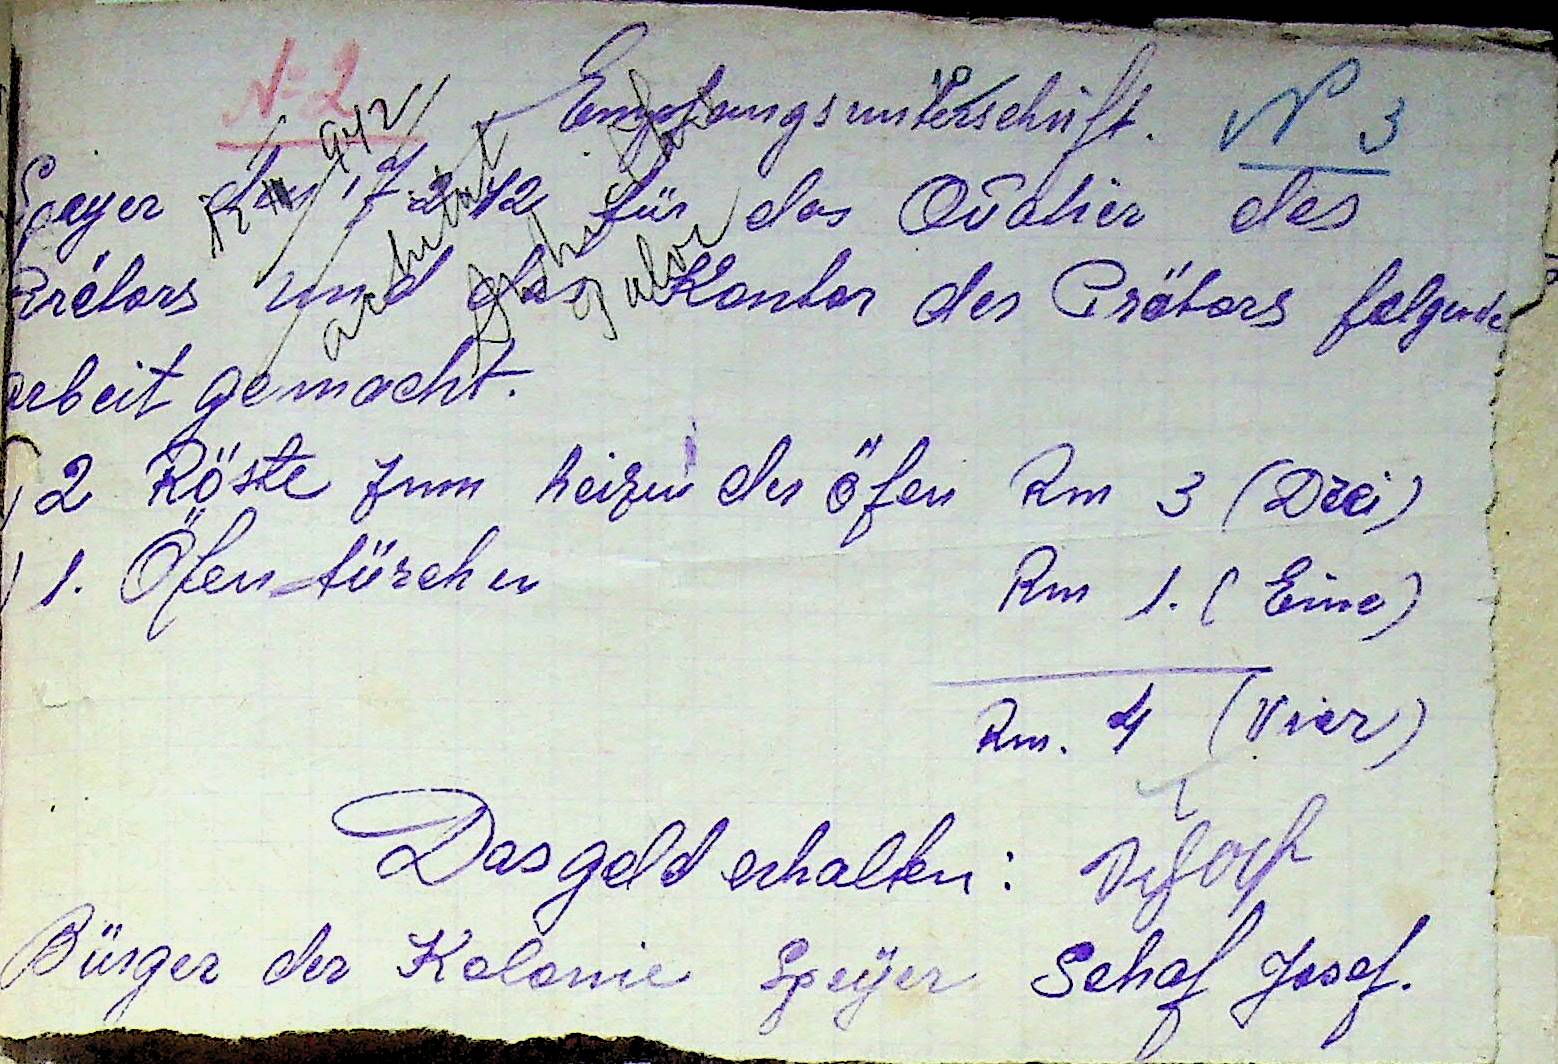 N-2
Empfangsunterschrift. N 3
Speyer den 17-2-42 für das Quatier des
Prätors und das Kontor des Prätors folgende
arbeit gemacht.
) 2 Röste zum heizen der öfen Rm 3 (Drei)
) 1. Öfentürchen Rm 1. (Eine)
Rm. 4 (Vier)
Das geld erhalten:
Bürger der Kolonie Speyer Schaf Josef.